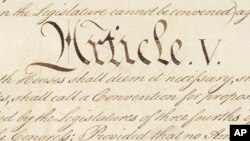 the Legislature cannot be convened,) ag
Article. V.
th Houses shall deem it necessary, s
es, shall call a Convention for propos
ed by the Legislatures of three fourths
the Congress; Provided that no Am
AP